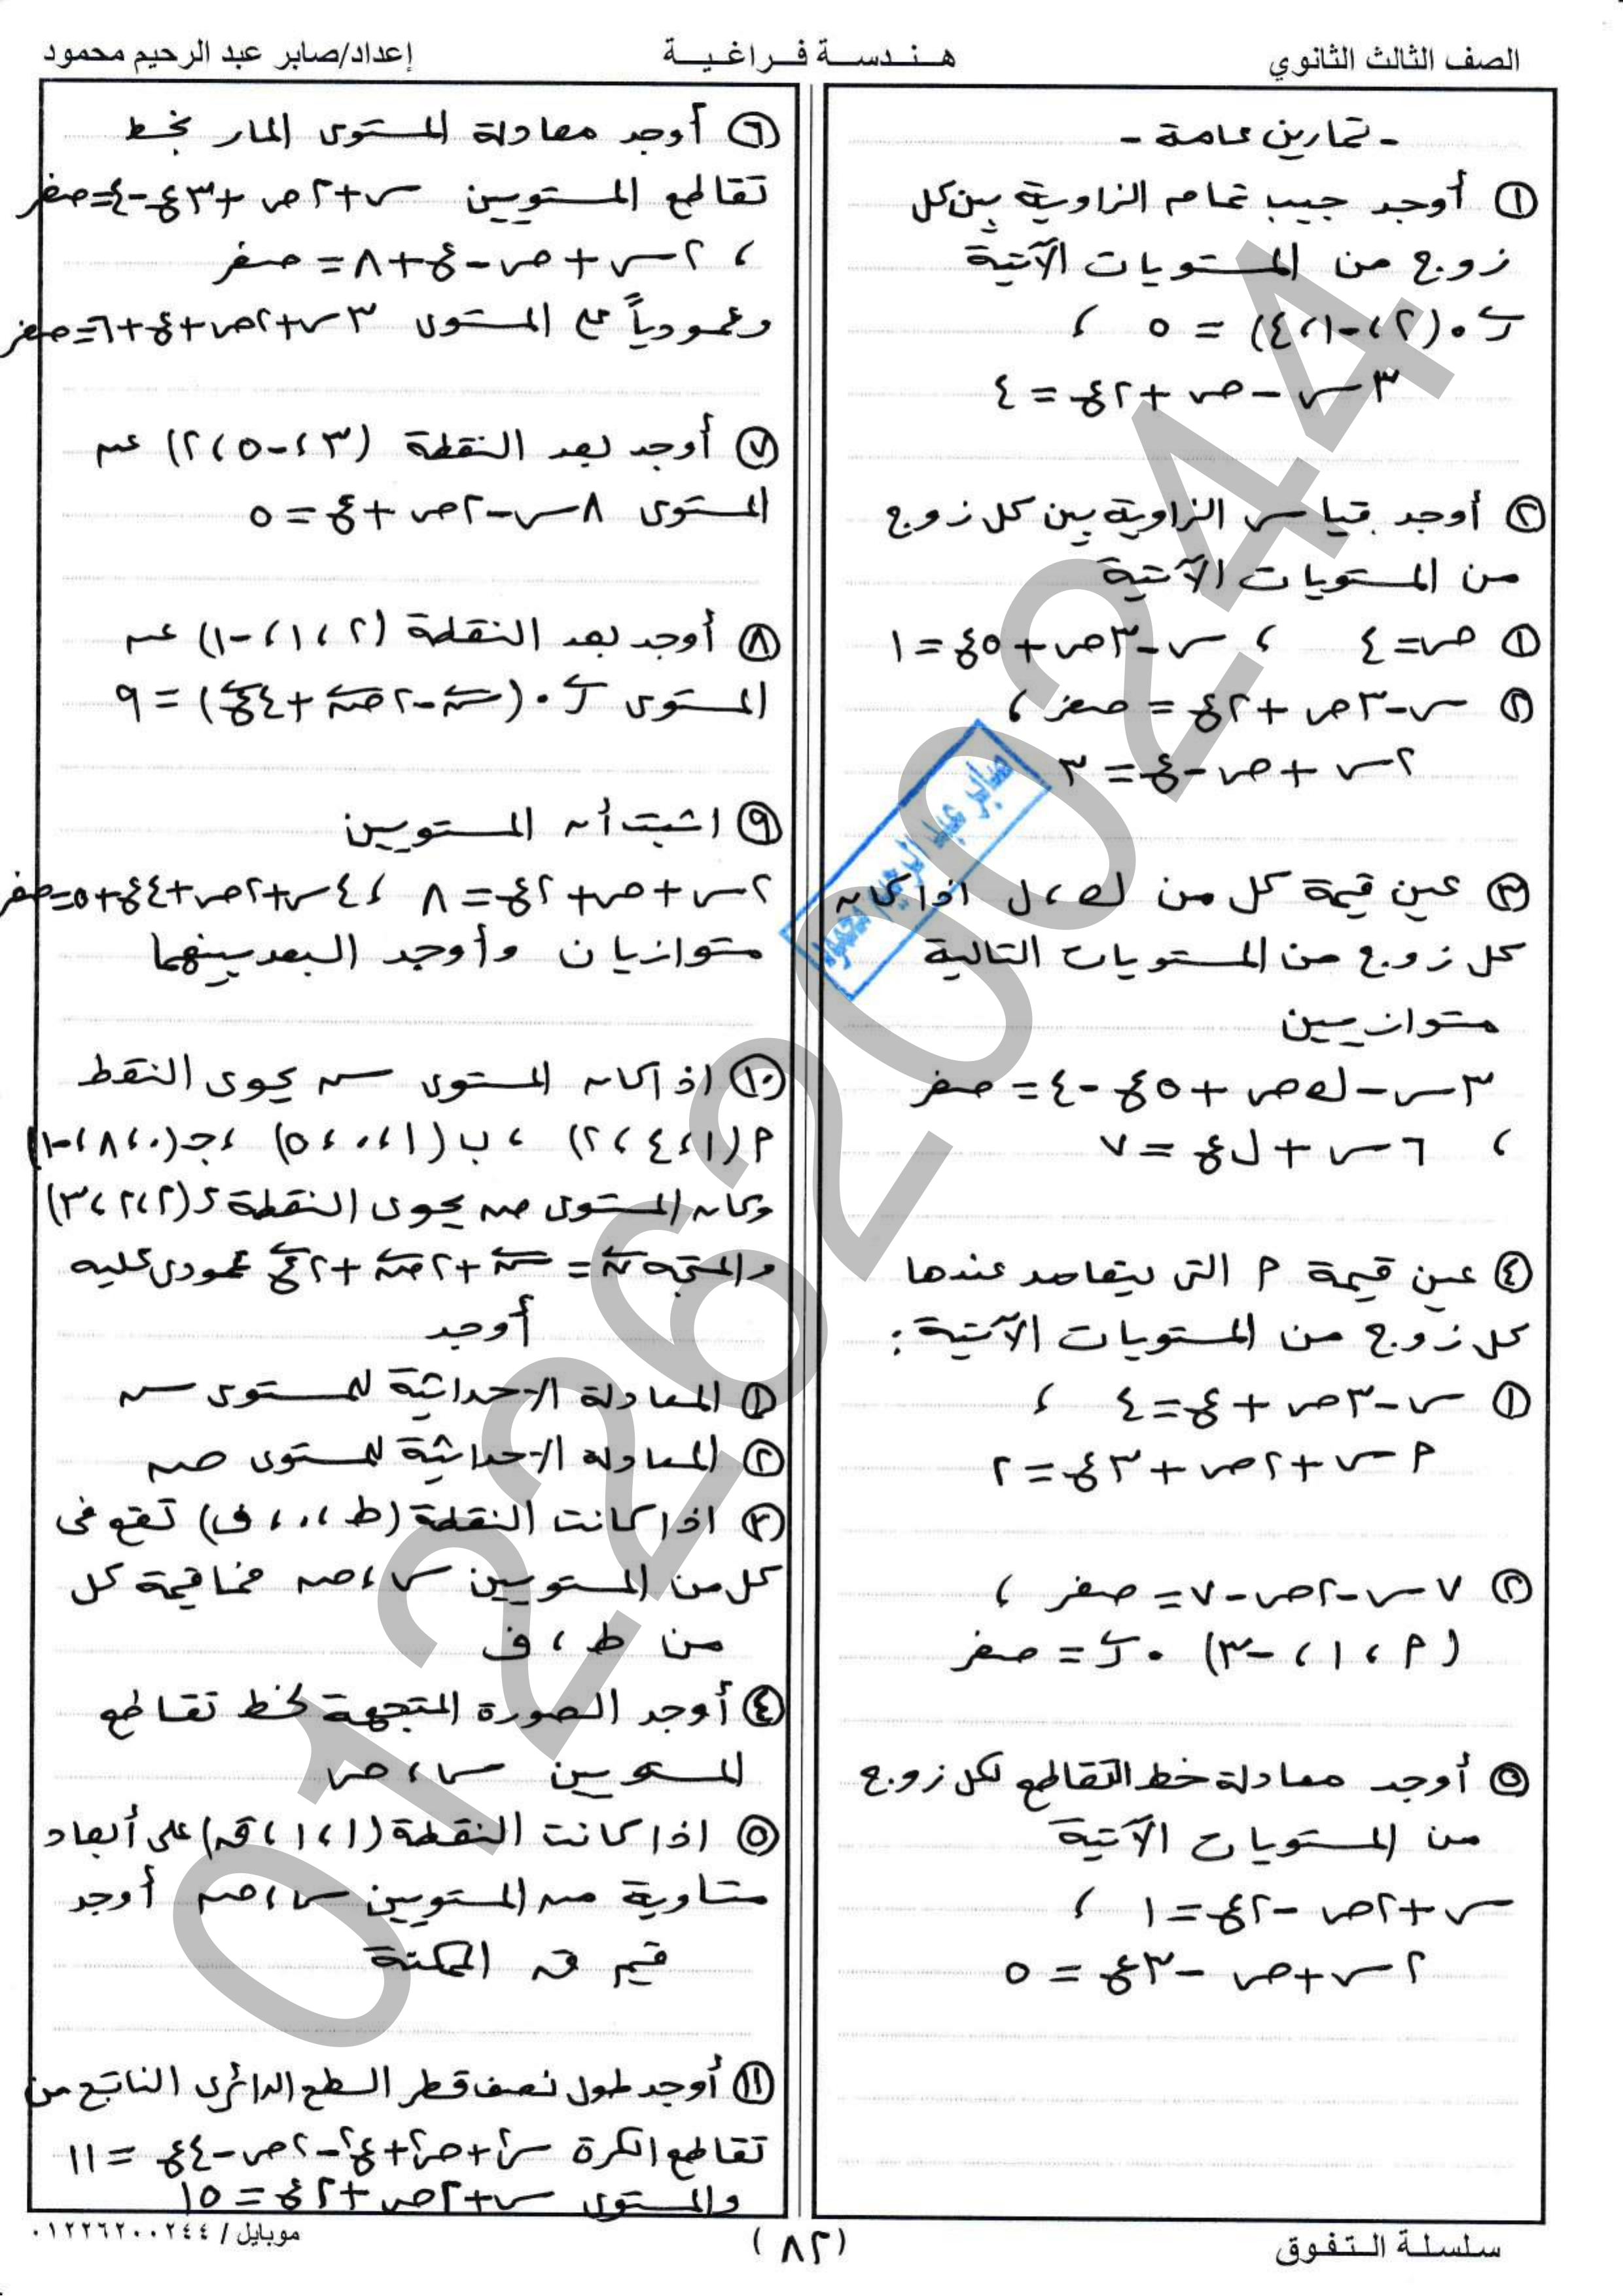 الصف الثالث الثانوي
هـنـدسـة فـراغـيـة
إعداد/صابر عبد الرحيم محمود
- تمارين عامة -
① أوجد جيب تمام الزاوية بين كل
زوج من المستويات الآتية
ر⃗ ٠ (٢ ، -١ ، ٤) = ٥ ،
٣س - ص + ٢ع = ٤
② أوجد قياس الزاوية بين كل زوج
من المستويات الآتية
① ص = ٤ ، س - ٣ص + ٥ع = ١
② س - ٣ص + ٢ع = صفر ،
٢س + ص - ع = ٣
③ عين قيمة كل من ك ، ل اذا كان
كل زوج من المستويات التالية
متوازيين
٣س - ك ص + ٥ع - ٤ = صفر
، ٦س + ل ع = ٧
④ عين قيمة م التى يتعامد عندها
كل زوج من المستويات الآتية :
① س - ٣ص + ع = ٤ ،
م س + ٢ص + ٣ع = ٢
② ٧س - ٢ص - ٧ = صفر ،
(م ، ١ ، -٣) ٠ ر⃗ = صفر
⑤ أوجد معادلة خط التقاطع لكل زوج
من المستويات الآتية
س + ٢ص - ٢ع = ١ ،
٢س + ص - ٣ع = ٥
⑥ أوجد معادلة المستوى المار بخط
تقاطع المستويين س + ٢ص + ٣ع - ٤ = صفر
، ٢س + ص - ع + ٨ = صفر
وعمودياً على المستوى ٣س + ٢ص + ع + ٦ = صفر
⑦ أوجد بعد النقطة (٣ ، -٥ ، ٢) عن
المستوى ٨س - ٢ص + ع = ٥
⑧ أوجد بعد النقطة (٢ ، ١ ، -١) عن
المستوى ر⃗ ٠ (س⃗ - ٢ص⃗ + ٤ع⃗) = ٩
⑨ اثبت أن المستويين
٢س + ص + ٢ع = ٨ ، ٤س + ٢ص + ٤ع + ٥ = صفر
متوازيان وأوجد البعد بينهما
⑩ اذا كان المستوى س يحوى النقط
م (١ ، ٤ ، ٢) ، ب (١ ، ٠ ، ٥) ، جـ (٠ ، ٨ ، -١)
وكان المستوى ص يحوى النقطة د (٢ ، ٢ ، ٣)
والمتجه ن⃗ = س⃗ + ٢ص⃗ + ٢ع⃗ عمودى عليه
أوجد
① المعادلة الاحداثية للمستوى س
② المعادلة الاحداثية للمستوى ص
③ اذا كانت النقطة (ط ، ٠ ، ف) تقع فى
كل من المستويين س ، ص فما قيمة كل
من ط ، ف
④ أوجد الصورة المتجهة لخط تقاطع
المستويين س ، ص
⑤ اذا كانت النقطة (١ ، ١ ، ق) على أبعاد
متساوية من المستويين س ، ص أوجد
قيم ق الممكنة
⑪ أوجد طول نصف قطر السطح الدائرى الناتج من
تقاطع الكرة س² + ص² + ع² - ٢ص - ٤ع = ١١
والمستوى س + ٢ص + ٢ع = ١٥
صابر عبد الرحيم محمود
01226200244
سلسلة التفوق
(٨٢)
موبايل / ٠١٢٢٦٢٠٠٢٤٤